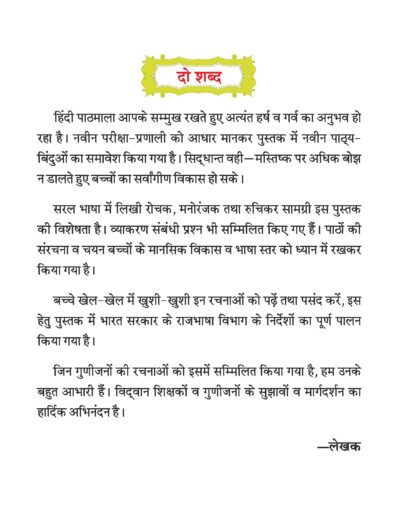 दो शब्द
हिंदी पाठमाला आपके सम्मुख रखते हुए अत्यंत हर्ष व गर्व का अनुभव हो
रहा है। नवीन परीक्षा-प्रणाली को आधार मानकर पुस्तक में नवीन पाठ्य-
बिंदुओं का समावेश किया गया है। सिद्धान्त वही—मस्तिष्क पर अधिक बोझ
न डालते हुए बच्चों का सर्वांगीण विकास हो सके।
सरल भाषा में लिखी रोचक, मनोरंजक तथा रुचिकर सामग्री इस पुस्तक
की विशेषता है। व्याकरण संबंधी प्रश्न भी सम्मिलित किए गए हैं। पाठों की
संरचना व चयन बच्चों के मानसिक विकास व भाषा स्तर को ध्यान में रखकर
किया गया है।
बच्चे खेल-खेल में खुशी-खुशी इन रचनाओं को पढ़ें तथा पसंद करें, इस
हेतु पुस्तक में भारत सरकार के राजभाषा विभाग के निर्देशों का पूर्ण पालन
किया गया है।
जिन गुणीजनों की रचनाओं को इसमें सम्मिलित किया गया है, हम उनके
बहुत आभारी हैं। विद्वान शिक्षकों व गुणीजनों के सुझावों व मार्गदर्शन का
हार्दिक अभिनंदन है।
—लेखक